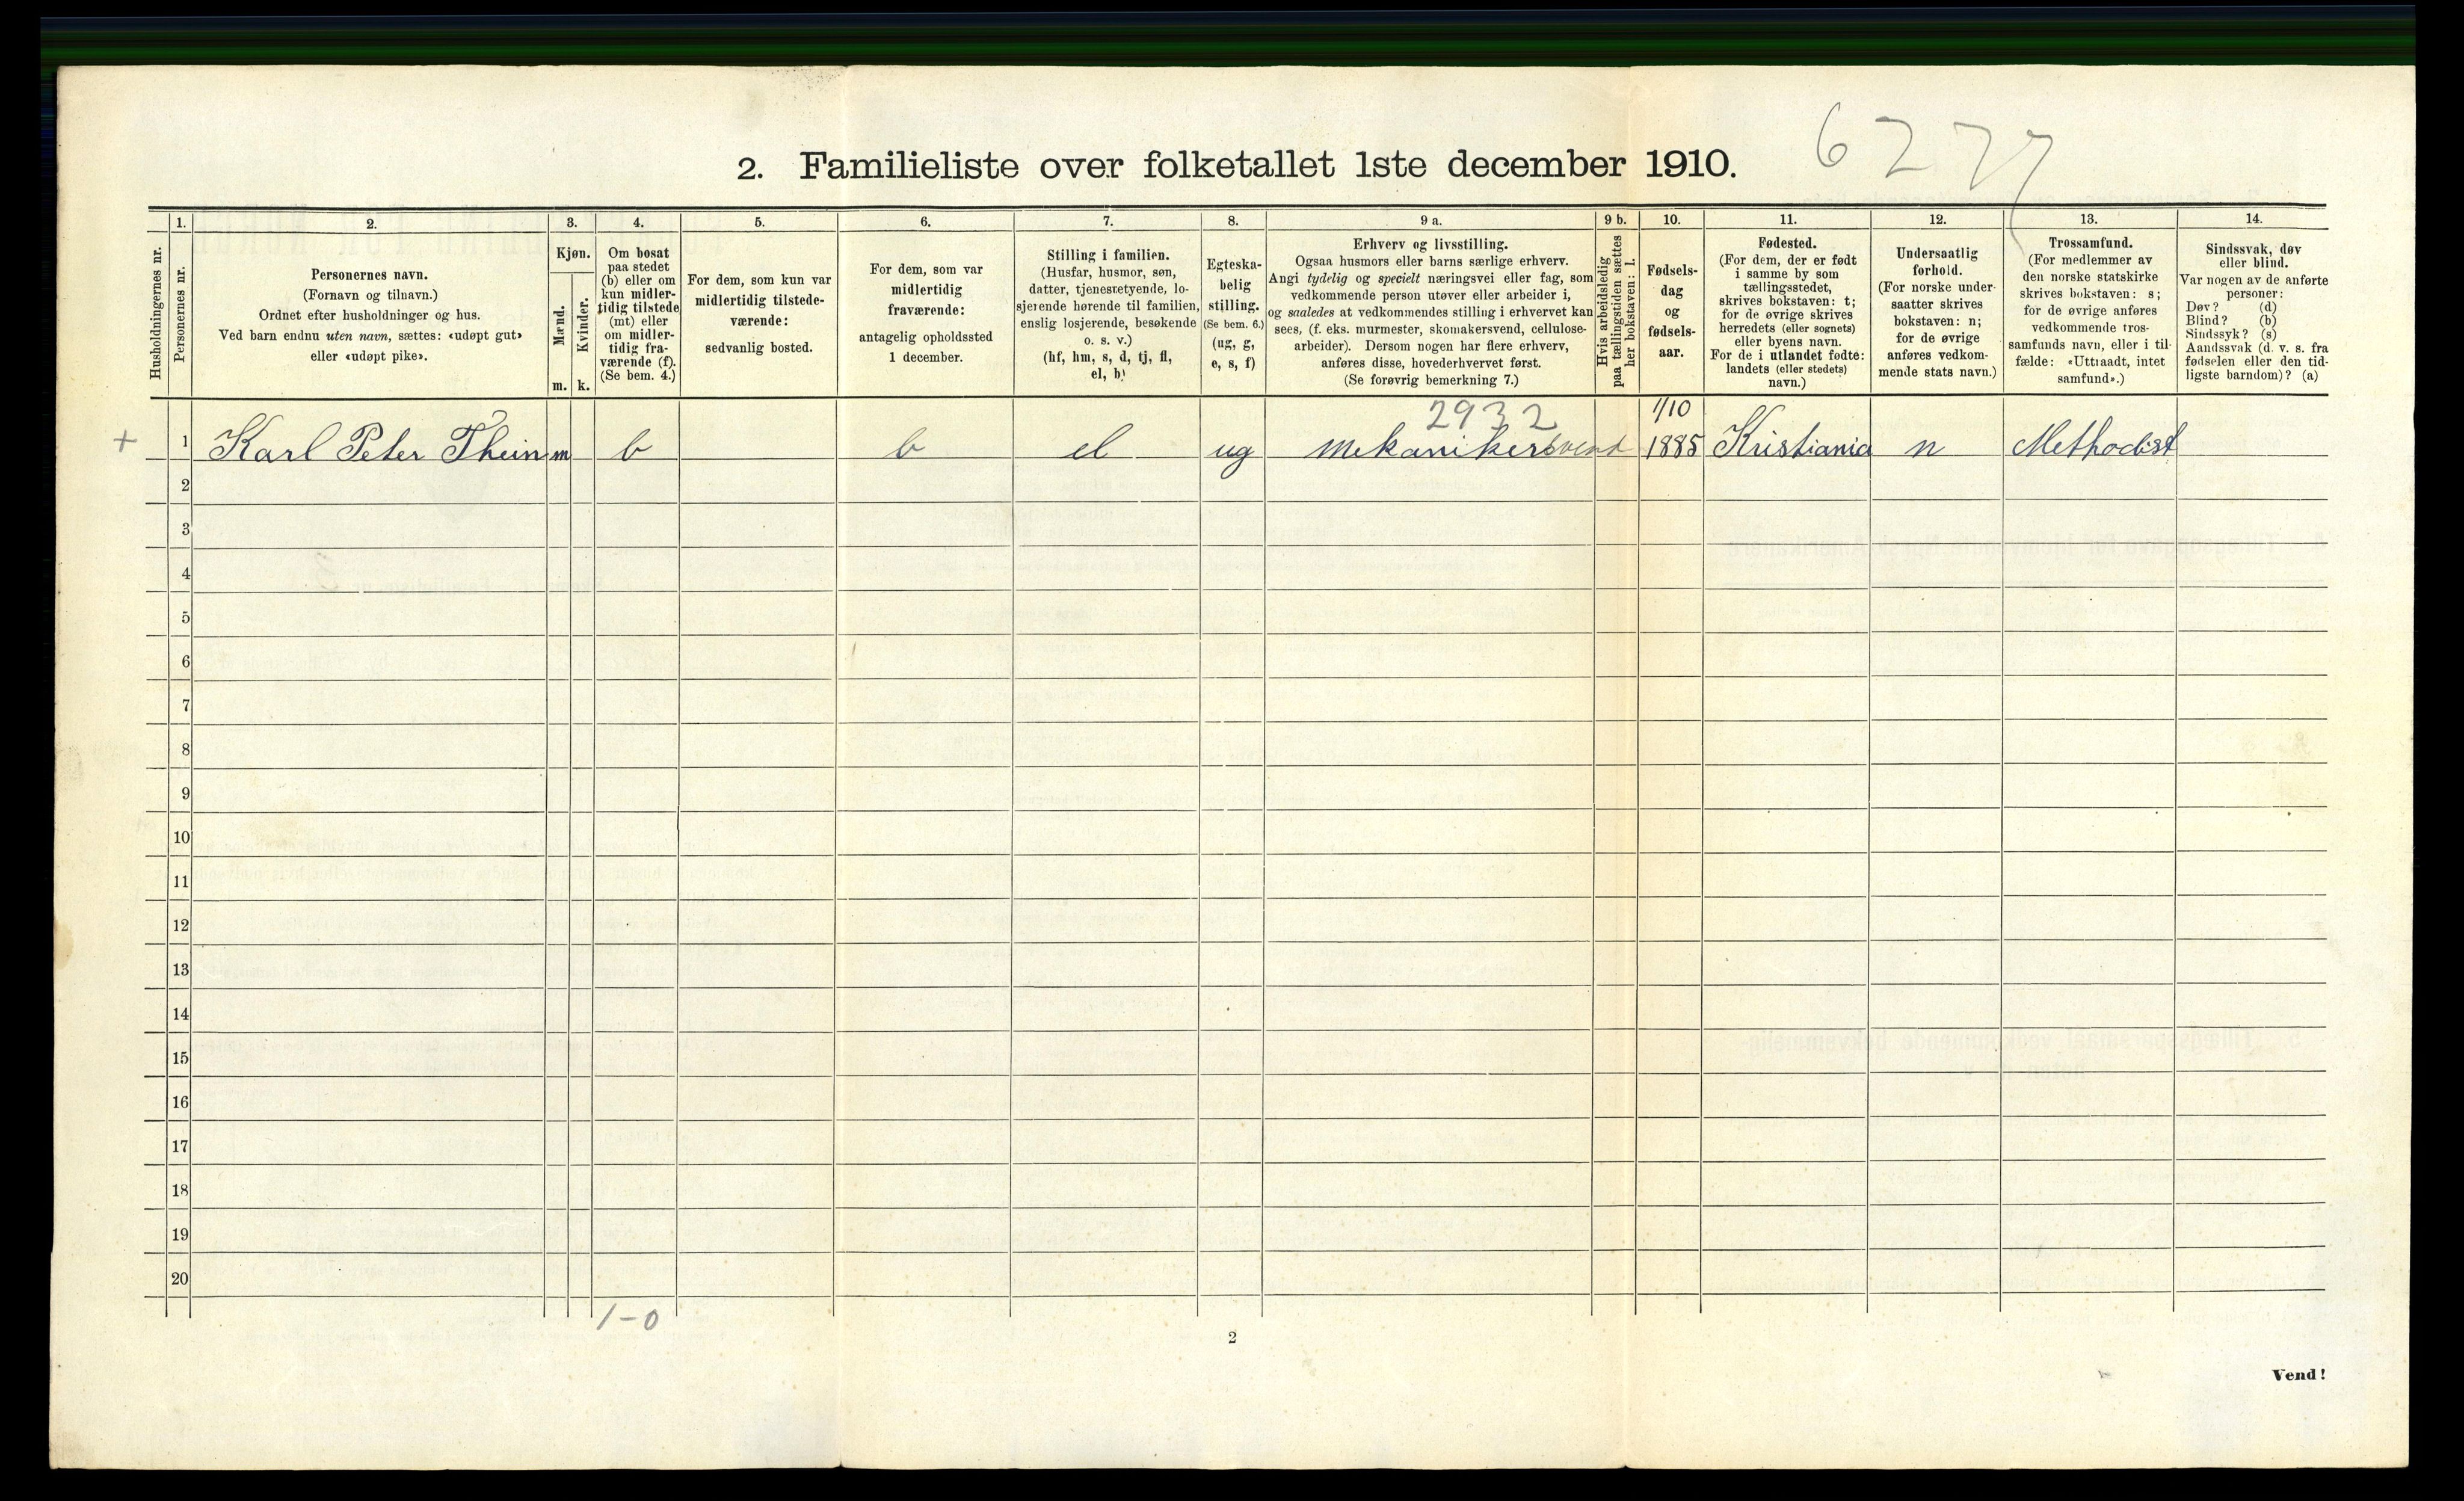 6277
2. Familieliste over folketallet 1ste december 1910.
Husholdningernes nr.
1.
Personernes nr.
2.
Personernes navn.
(Fornavn og tilnavn.)
Ordnet efter husholdninger og hus.
Ved barn endnu uten navn, sættes: «udøpt gut»
eller «udøpt pike».
3.
Kjøn.
Mænd.
Kvinder.
m. k.
4.
Om bosat
paa stedet
(b) eller om
kun midler-
tidig tilstede
(mt) eller
om midler-
tidig fra-
værende (f).
(Se bem. 4.)
5.
For dem, som kun var
midlertidig tilstede-
værende:
sedvanlig bosted.
6.
For dem, som var
midlertidig
fraværende:
antagelig opholdssted
1 december.
7.
Stilling i familien.
(Husfar, husmor, søn,
datter, tjenestetyende, lo-
sjerende hørende til familien,
enslig losjerende, besøkende
o. s. v.)
(hf, hm, s, d, tj, fl,
el, b)
8.
Egteska-
belig
stilling.
(Se bem. 6.)
(ug, g,
e, s, f)
9 a.
Erhverv og livsstilling.
Ogsaa husmors eller barns særlige erhverv.
Angi tydelig og specielt næringsvei eller fag, som
vedkommende person utøver eller arbeider i,
og saaledes at vedkommendes stilling i erhvervet kan
sees, (f. eks. murmester, skomakersvend, cellulose-
arbeider). Dersom nogen har flere erhverv,
anføres disse, hovederhvervet først.
(Se forøvrig bemerkning 7.)
9 b.
Hvis arbeidsledig
paa tællingstiden sættes
her bokstaven: l.
10.
Fødsels-
dag
og
fødsels-
aar.
11.
Fødested.
(For dem, der er født
i samme by som
tællingsstedet,
skrives bokstaven: t;
for de øvrige skrives
herredets (eller sognets)
eller byens navn.
For de i utlandet fødte:
landets (eller stedets)
navn.)
12.
Undersaatlig
forhold.
(For norske under-
saatter skrives
bokstaven: n;
for de øvrige
anføres vedkom-
mende stats navn.)
13.
Trossamfund.
(For medlemmer av
den norske statskirke
skrives bokstaven: s;
for de øvrige anføres
vedkommende tros-
samfunds navn, eller i til-
fælde: «Uttraadt, intet
samfund».)
14.
Sindssvak, døv
eller blind.
Var nogen av de anførte
personer:
Døv? (d)
Blind? (b)
Sindssyk? (s)
Aandssvak (d. v. s. fra
fødselen eller den tid-
ligste barndom)? (a)
2932 1/10
+ 1 Karl Peter Thein m b b el ug Mekanikersvend 1885 Kristiania n Methodist
2
3
4
5
6
7
8
9
10
11
12
13
14
15
16
17
18
19
20
1-0
2
Vend!